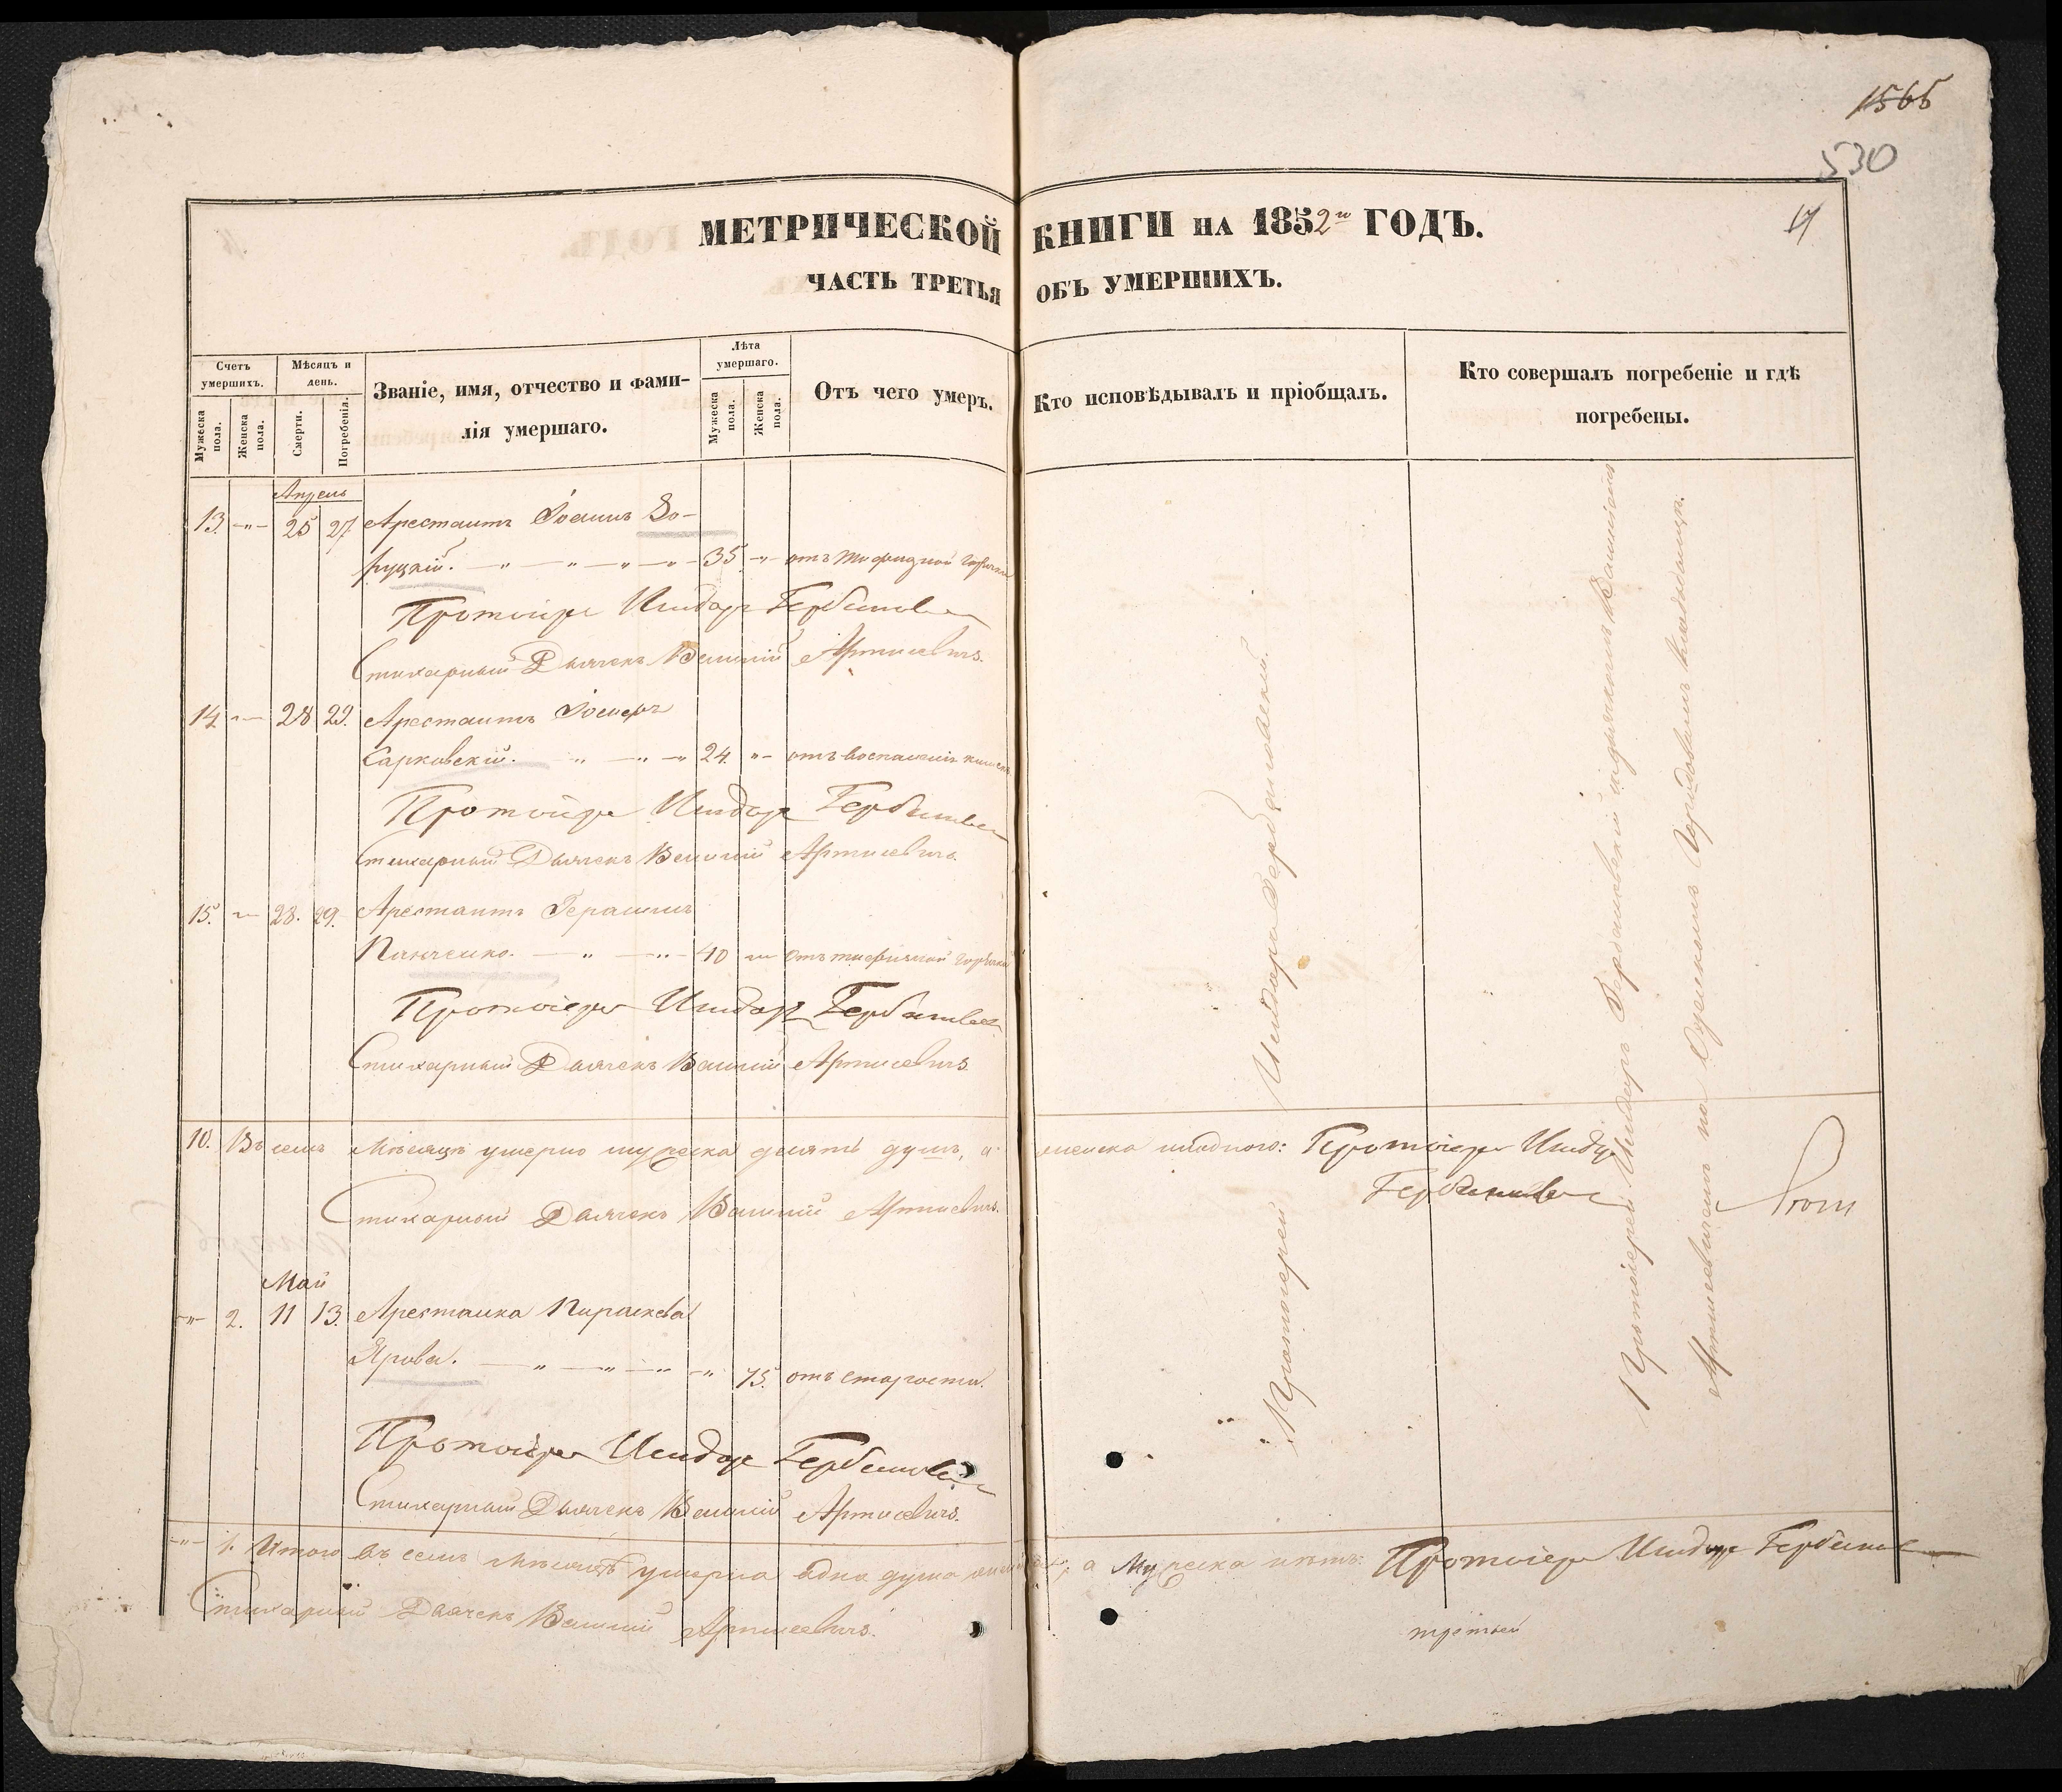 1565
530
МЕТРИЧЕСКОЙ КНИГИ НА 1852й ГОДЪ.
17
ЧАСТЬ ТРЕТЬЯ ОБЪ УМЕРШИХЪ.
Счетъ умершихъ.
Мѣсяцъ и день.
Званіе, имя, отчество и фами-
лія умершаго.
Лѣта умершаго.
Отъ чего умеръ.
Кто исповѣдывалъ и пріобщалъ.
Кто совершалъ погребеніе и гдѣ
погребены.
Мужеска пола.
Женска пола.
Смерти.
Погребенія.
Мужеска пола.
Женска пола.
Апрель
13. -"- 25 27 Арестантъ Іоаннъ Зо-
руцкій. — " — " — " — " — 35 -"- отъ тифозной горячки
Протоіерей Исидоръ Гербановскій
Стихарный Дьячекъ Василій Артисевичъ.
14. -"- 28 29. Арестантъ Іосифъ
Сарковскій. " — " — " 24. "- отъ воспаленія кишекъ
Протоіерей Исидоръ Гербановскій
Стихарный Дьячекъ Василій Артисевичъ.
15. -"- 28. 29. Арестантъ Герасимъ
Панченко. — " — " — 40 -"- отъ тифозной горячки
Протоіерей Исидоръ Гербановскій
Стихарный Дьячекъ Василій Артисевичъ.
10. Въ семъ Мѣсяцѣ умерло мужеска десять душъ, а женска ниодного: Протоіерей Исидоръ
Гербановскій
Стихарный Дьячекъ Василій Артисевичъ.
Май
-"- 2. 11 13. Арестанка Параскева
Ярова. — " — " — " — " 75. отъ старости.
Протоіерей Исидоръ Гербановскій
Стихарный Дьячекъ Василій Артисевичъ.
-"- 1. Итого въ семъ Мѣсяцѣ умерла одна душа женска, а Мужеска нѣтъ: Протоіерей Исидоръ Гербановскій
Стихарный Дьячекъ Василій Артисевичъ.
Протоіерей Исидоръ Гербановскій.
Протоіерей Исидоръ Гербановскій съ дьячкомъ Василіемъ
Артисевичемъ на Одесскомъ Городовомъ Кладбищѣ.
третьей